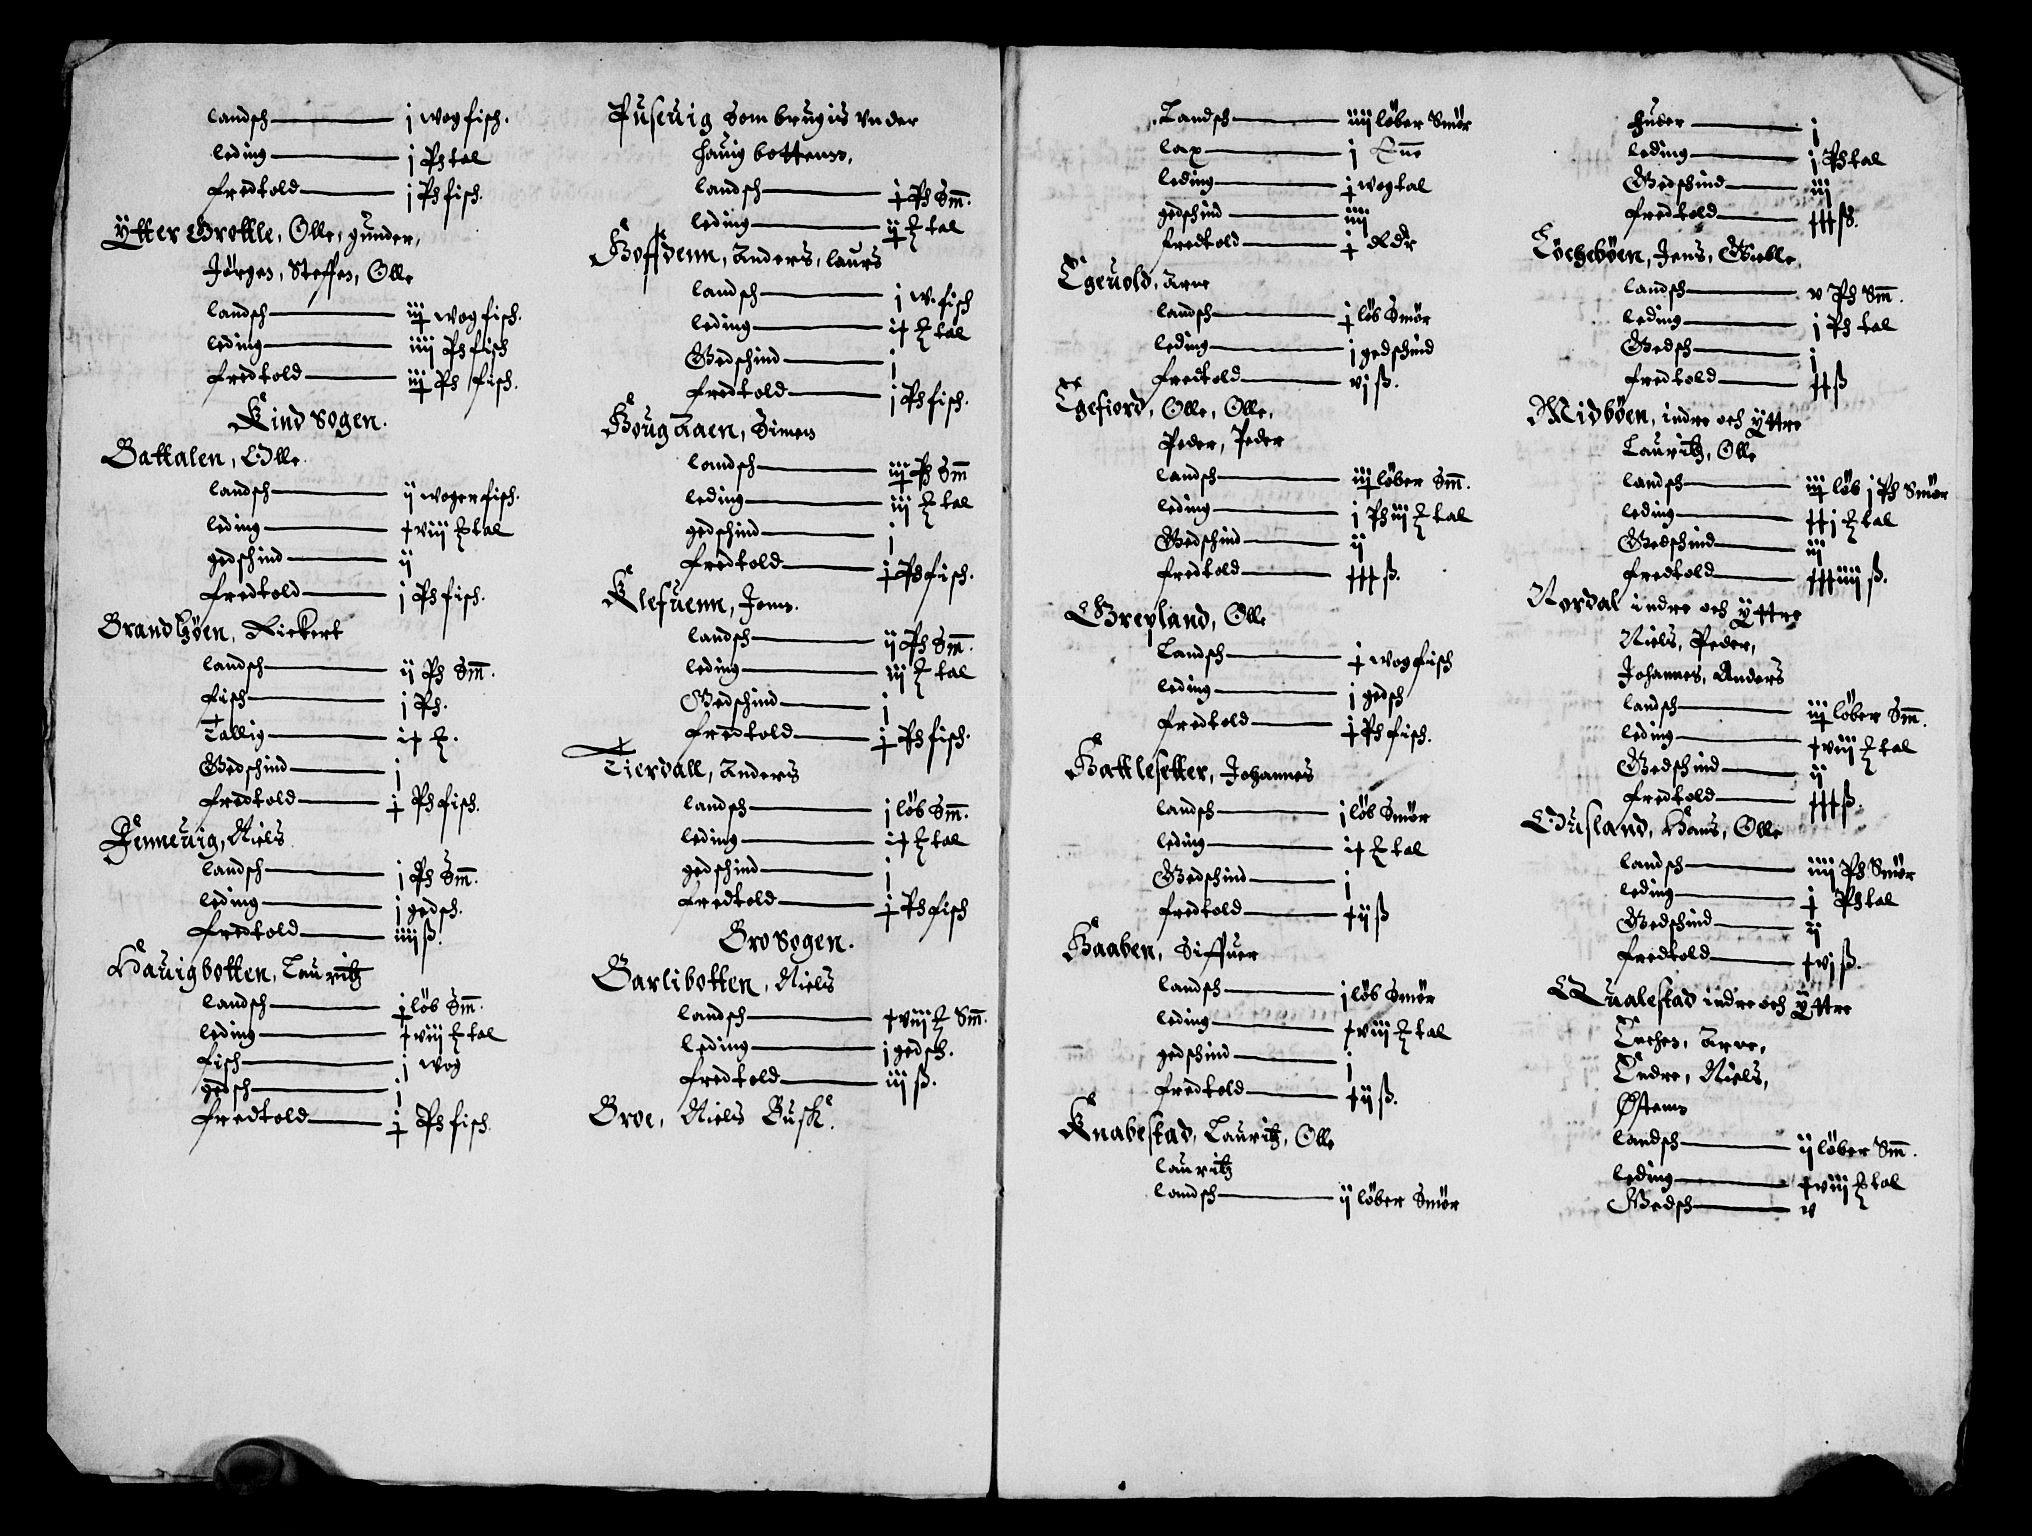 landsch — j wog fisch.
leding — j Ph tal
fredtold — j Ph fisch.
Ytter Grottle, Olle, gunder,
Jørgen, Steffen, Olle
landsch — iij wog fisch.
leding — iiij Ph fisch
fredtold — iij Ph fisch.
Kind sogen.
Battalen, Olle
landsch — ij woger fisch.
leding — † viij tal
gedschind — ij
fredtold — j Ph fisch.
Brandhøen, Rickert
landsch — ij Ph Sm̄.
fisch — j Ph.
Tallig — i†
Gedschind — j
fredtold — j Ph fisch.
Femmeuig, Niels
landsch — j Ph Sm̄.
leding — j gedsch.
fredtold — iiij ß.
Hauigbotten, Lauritz
landsch — j løb Sm̄.
leding — † viij tal
fisch — j wog
gedsch — j
fredtold — j Ph fisch.
Puseuig Som brugis vnder
hauig bottenn,
landsch — j Ph Sm̄.
leding — ij tal
Hoffdenn, Anders, laurs
landsch — j w. fisch
leding — i† tal
Gedschind — j
fredtold — j Ph fisch.
Houg Aaen, Simen
landsch — iij Ph Sm̄
leding — iij tal
gedschind — j
fredtold — j Ph fisch.
Klefuenn, Jens.
landsch — ij Ph Sm̄.
leding — iij tal
Gedschind — j
fredtold — j Ph fisch.
Tierdall, Anders
landsch — j løb Sm̄.
leding — i† tal
gedschind — j
fredtold — j Ph fisch
Bro sogen.
Barlibotten, Niels
landsch — † viij Sm̄.
leding — j gedsch.
fredtold — iij ß.
Broe, Niels Busk.
Landsch — iiij løber Smør
lax — j
leding — j wog tal
gedschind — iiij
fredtold — j Rdr
Egeuold, Arne
landsch — j løb Smør
leding — j gedschind
fredtold — vj ß.
Egefiord, Olle, Olle,
Peder, Peder
landsch — iij løber Sm̄.
leding — j Ph iij tal
Gedschind — ij
fredtold — ††† ß.
Grepland, Olle
Landsch — j wog fisch
leding — j gedsch
fredtold — j Ph fisch.
Hattlesetter, Johannes
landsch — j løb Smør
leding — i† tal
Gedschind — j
fredtold — † ij ß
Haaben, Siffuer
landsch — j løb Smør
leding — † viij tal
gedschind — j
fredtold — † ij ß.
Knabestad, Lauritz, Olle
lauritz
landsch — ij løber Smør
huder — j
leding — j Ph tal
Gedschind — iij
fredtold — ††† ß.
Løchebøen, Jens, Gieble
landsch — v Ph Sm̄.
leding — j Ph tal
Gedsch — j
fredtold — †† ß
Midbøen, indre och Yttre
Lauritz, Olle
landsch — iij løb j Ph Smør
leding — †† j tal
Gedschind — iij
fredtold — ††† iiij ß.
Nordal indre och Yttre
Niels, Peder,
Johannes, Anders
landsch — iij løber Sm̄.
leding — † viij tal
Gedschind — ij
fredtold — ††† ß.
Husland, Hans, Olle
landsch — iiij Ph Smør
leding — j Ph tal
Gedschind — ij
fredtold — † vj ß.
Qualestad indre och Yttre
Arne,
Endre, Niels,
Østenn
landsch — ij løber Sm̄.
leding — † viij tal
Gedsch — v